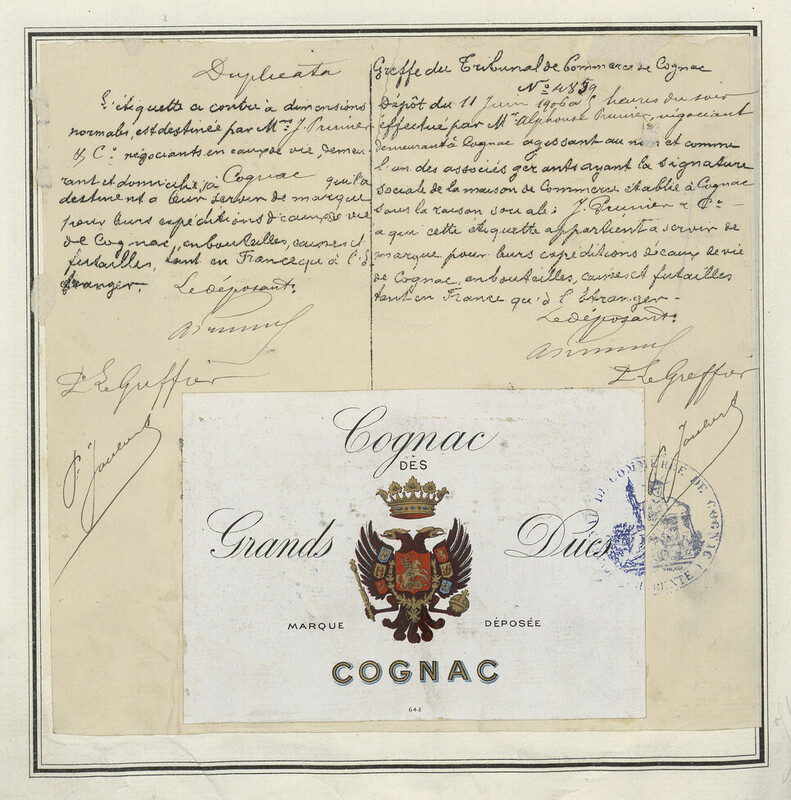 Duplicata
L'étiquette ci contre à dimensions
normales, est destinée par Mrs J. Prunier
& Co négociants en eaux de vie, demeu-
rant et domiciliés à Cognac qu'ils
destinent à leur servir de marque
pour leurs expéditions d'eaux de vie
de Cognac, en bouteilles, caisses et
futailles, tant en France qu'à l'é-
tranger.
Le déposant:
Pr Le Greffier
Greffe du Tribunal de Commerce de Cognac
No 4859
Dépôt du 11 Juin 1906 à 5 heures du soir
effectué par Mr Alphonse Prunier, négociant
demeurant à Cognac agissant au nom et comme
l'un des associés gérants ayant la signature
sociale de la maison de Commerce établie à Cognac
sous la raison sociale: J. Prunier & Co -
à qui cette étiquette appartient à servir de
marque pour leurs expéditions d'eaux de vie
de Cognac, en bouteilles, caisses et futailles
tant en France qu'à l'Etranger -
Le déposant:
Pr Le Greffier
Cognac
DES
Grands Ducs
MARQUE DÉPOSÉE
COGNAC
648
DE COMMERCE DE COGNAC